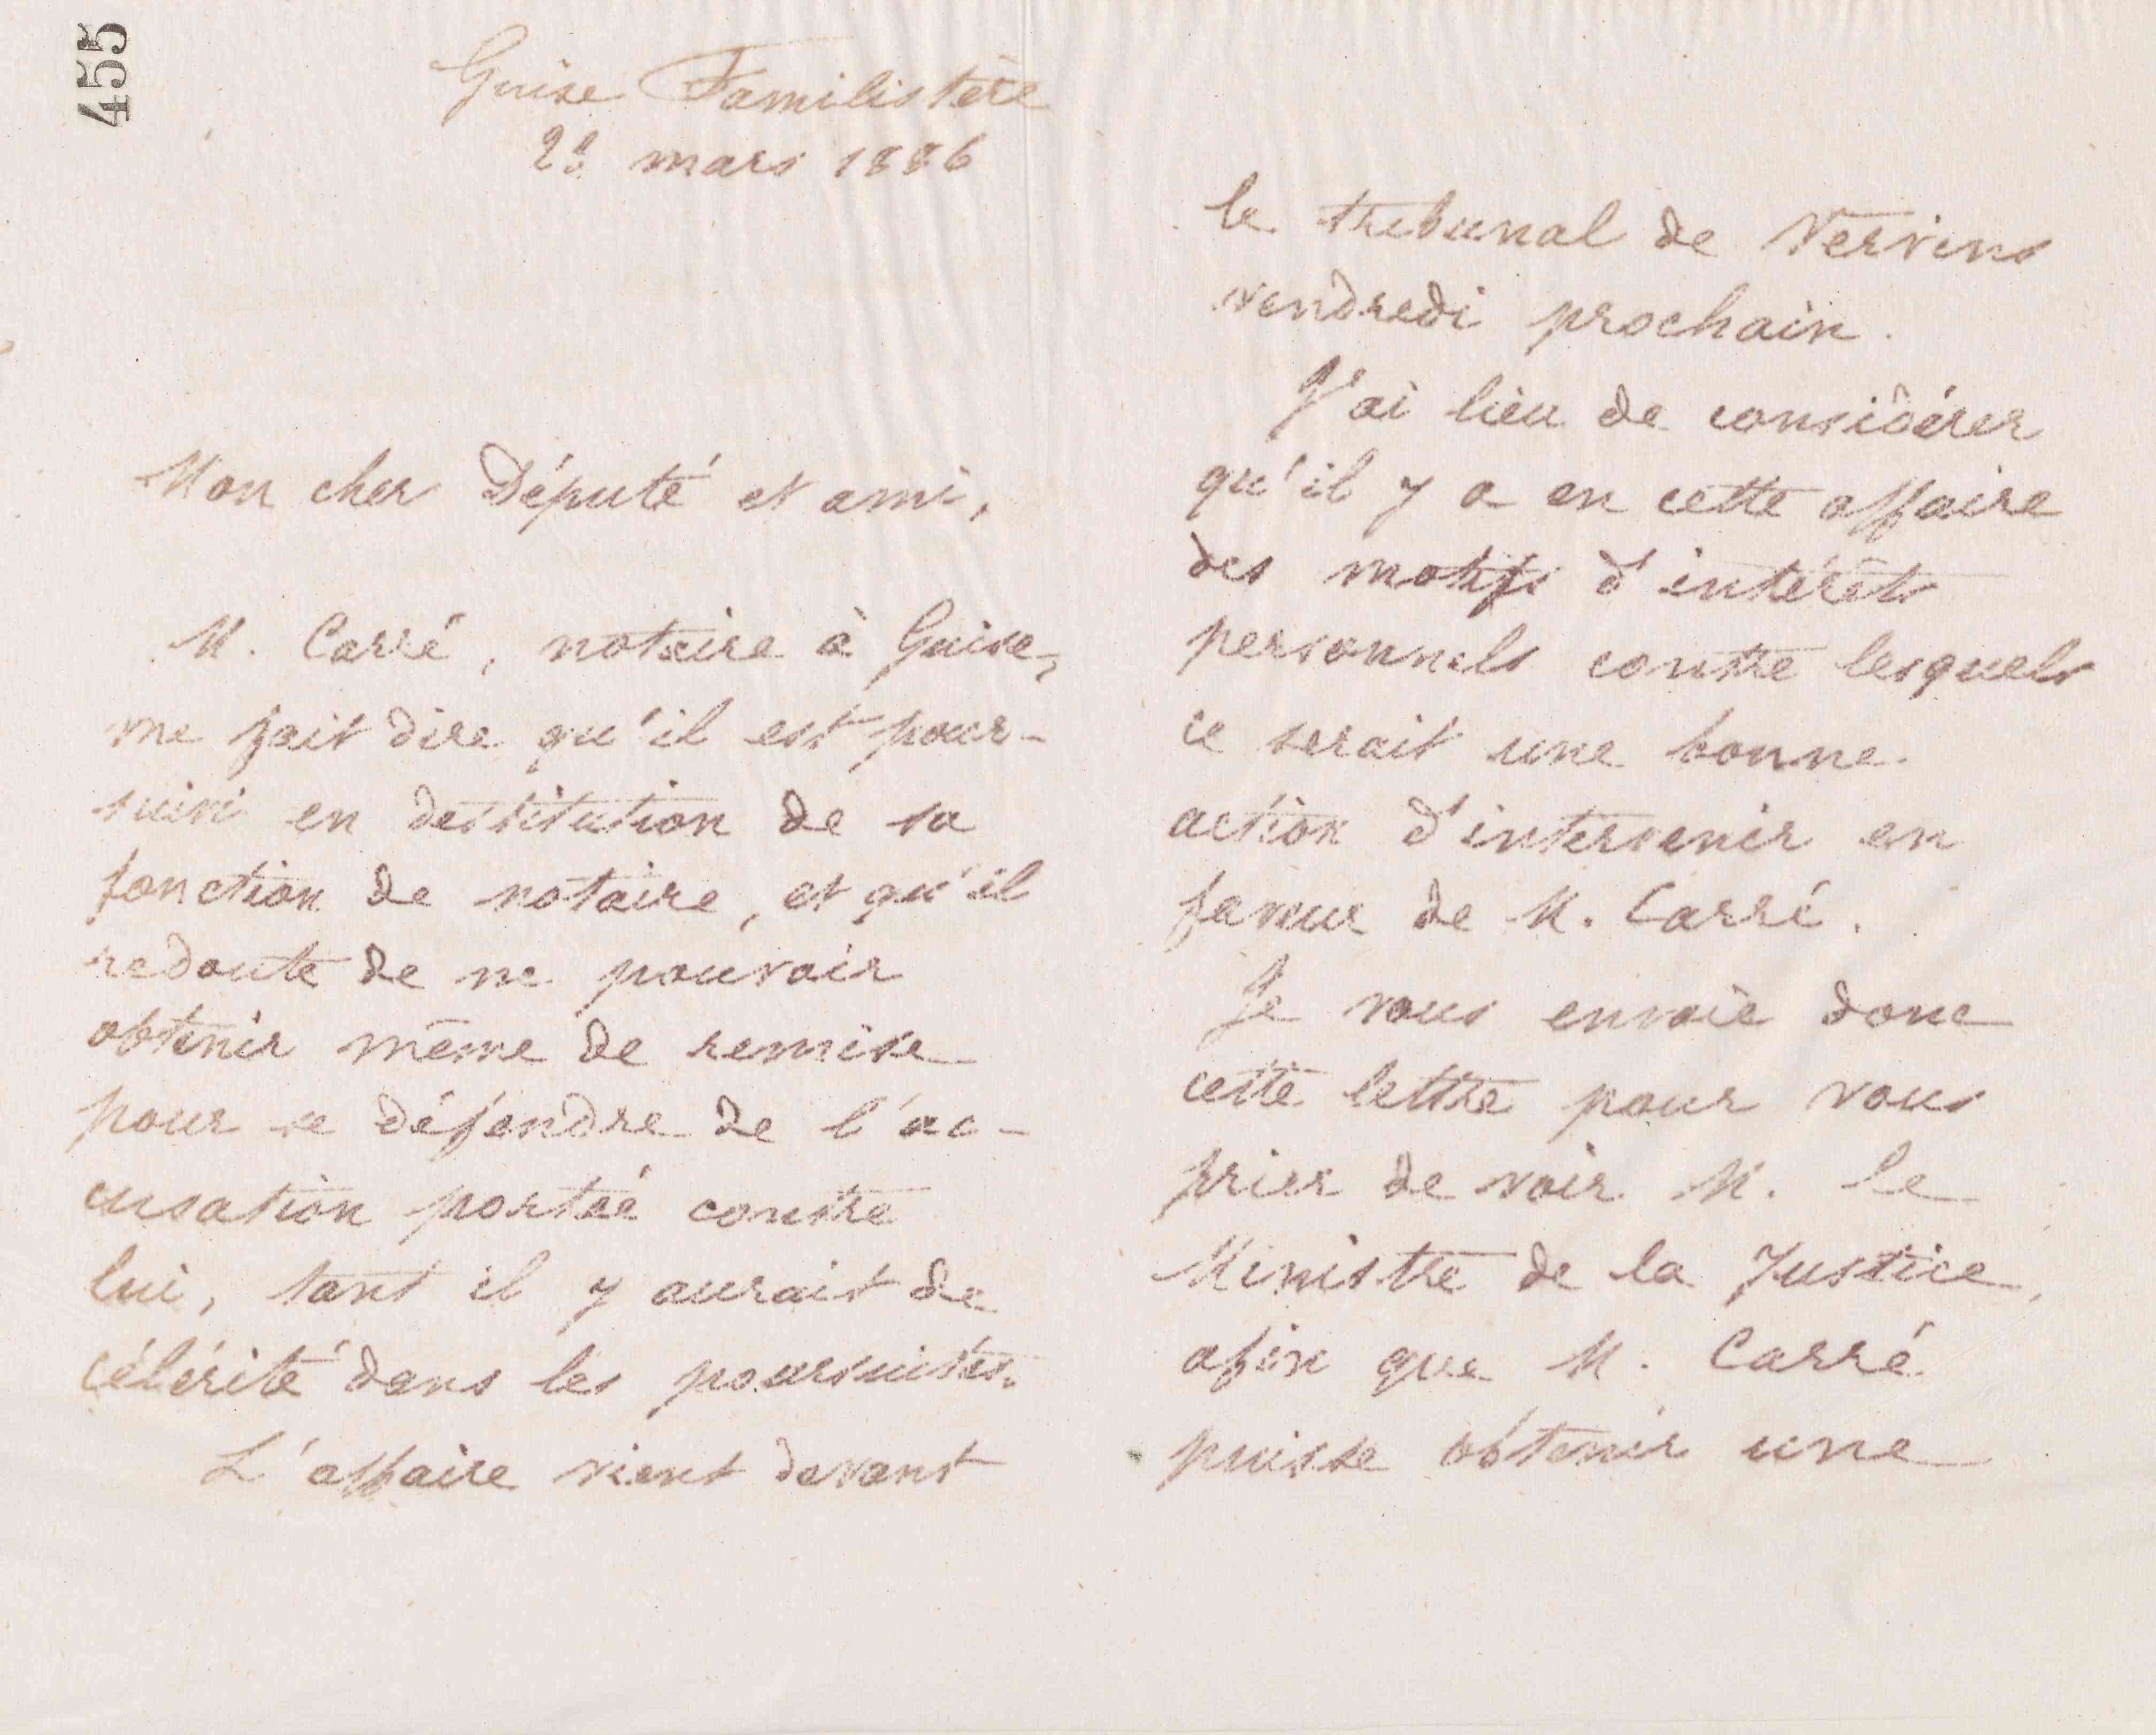 455
Guise Familistère
mars 1886
Mon cher Député et ami,
M. Carré, notaire à Guise,
me fait dire qu'il est pour-
suivi en destitution de sa
fonction de notaire, et qu'il
redoute de ne pouvoir
obtenir même de remise
pour se défendre de l'ac-
cusation portée contre
lui, tant il y aurait de
célérité dans les poursuites.
L'affaire vient devant
le tribunal de Vervins
vendredi prochain.
J'ai lieu de considérer
qu'il y a en cette affaire
des motifs d'intérêts
personnels contre lesquels
ce serait une bonne
action d'intervenir en
faveur de M. Carré.
Je vous envoie donc
cette lettre pour vous
prier de voir M. le
Ministre de la Justice,
afin que M. Carré
puisse obtenir une